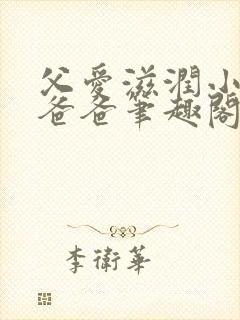 父愛滋潤小
爸爸筆趣閣
李衛華